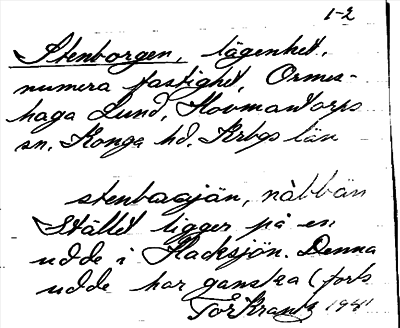 1-2
Stenborgen, lägenhet,
numera fastighet, Ormes-
haga Lund, Hovmantorps
sn, Konga hd, Krbgs län
stenbårjän, nàbbän
Stället ligger på en
udde i Racksjön. Denna
udde har ganska (forts
Tor Krantz 1941